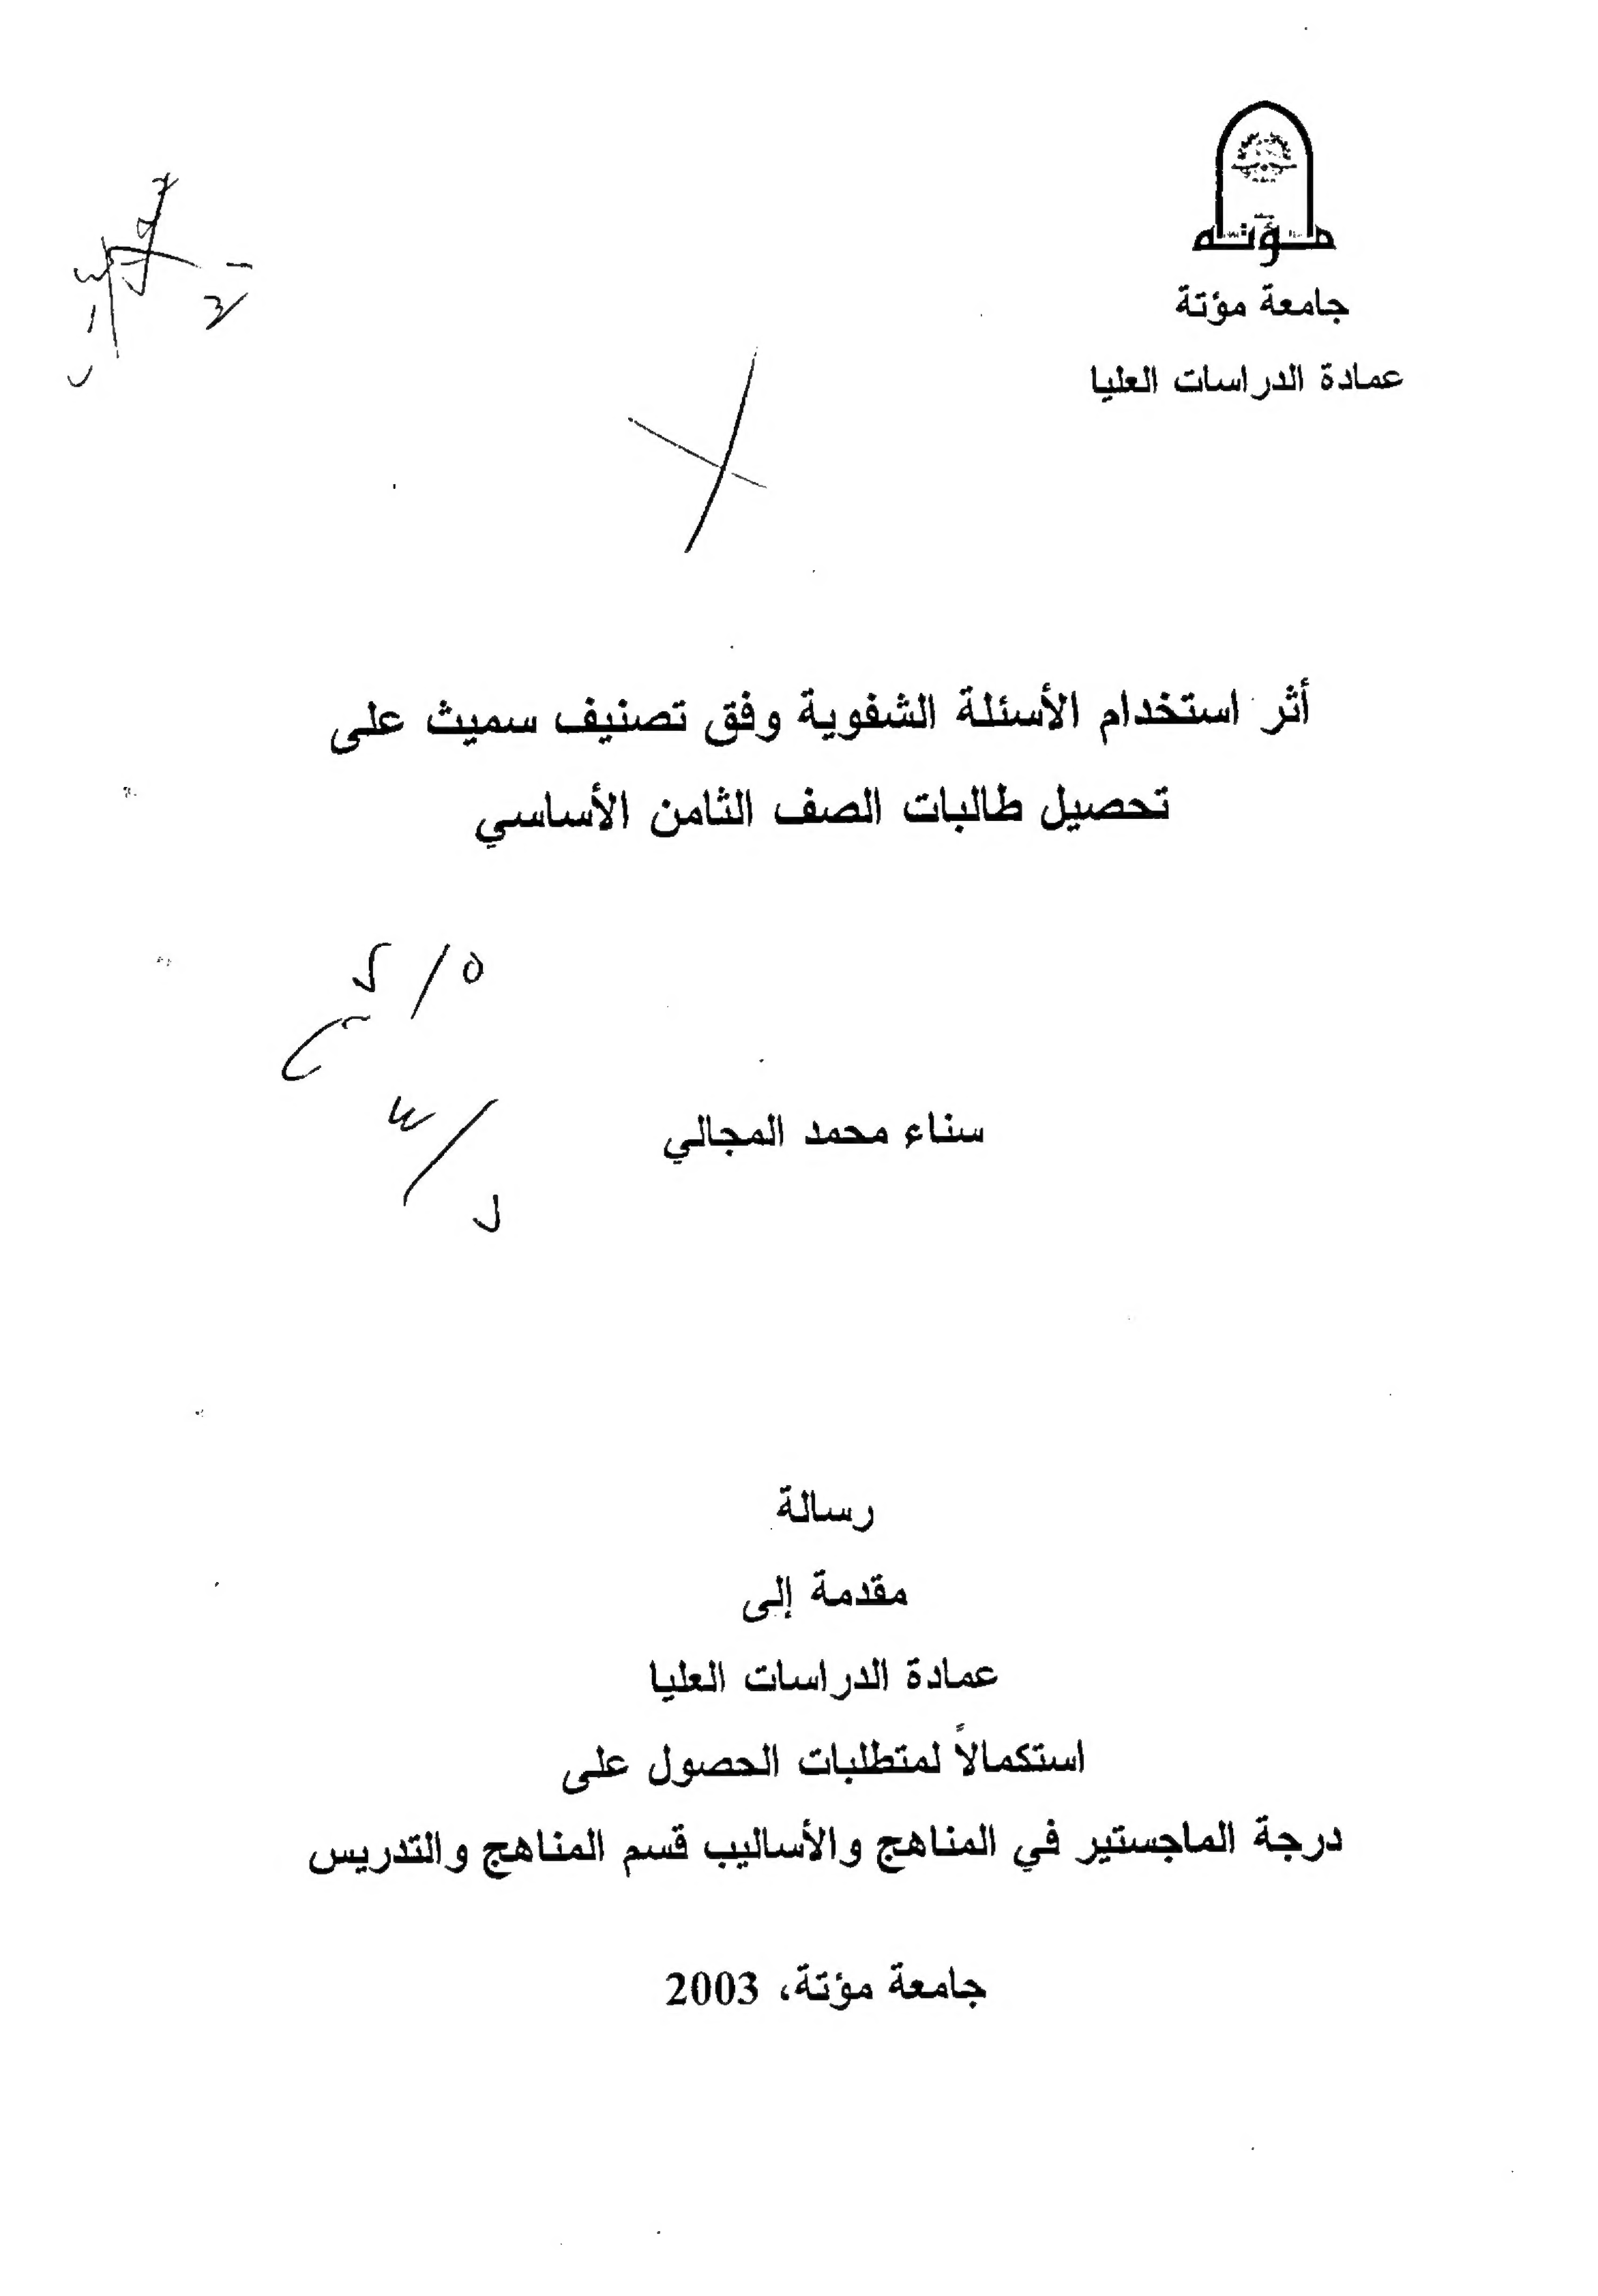 مؤتة
جامعة مؤتة
عمادة الدراسات العليا
أثر استخدام الأسئلة الشفوية وفق تصنيف سميث على
تحصيل طالبات الصف الثامن الأساسي
سناء محمد المجالي
رسالة
مقدمة إلى
عمادة الدراسات العليا
استكمالاً لمتطلبات الحصول على
درجة الماجستير في المناهج والأساليب قسم المناهج والتدريس
جامعة مؤتة، 2003